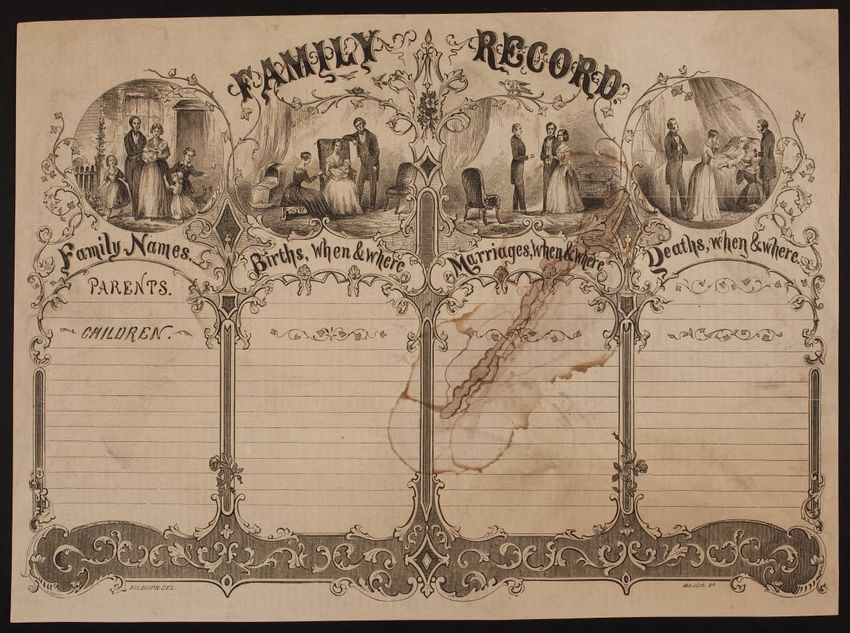 FAMILY RECORD.
Family Names.
Births, when & where
Marriages, when & where
Deaths, when & where.
PARENTS.
CHILDREN.
KILBURN. DEL.
MAJOR. SC